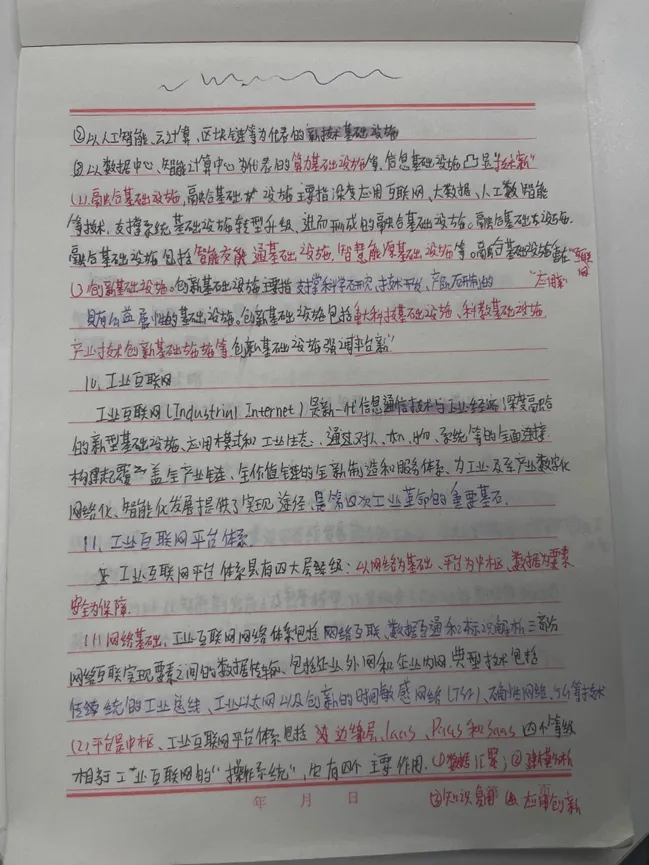 ②以人工智能、云计算、区块链等为代表的新技术基础设施
③以数据中心、智能计算中心为代表的算力基础设施等。信息基础设施凸显"技术新"
(2)融合基础设施,融合基础设施主要指深度应用互联网、大数据、人工智能
等技术,支撑系统基础设施转型升级,进而形成的融合基础设施。融合基础设施.
融合基础设施包括智能交通基础设施,智慧能源基础设施等。融合基础设施重在"
"应用新"
(3)创新基础设施。创新基础设施主要指支撑科学研究、技术开发、产品研制的
具有公益属性的基础设施。创新基础设施包括重大科技基础设施、科教基础设施
产业技术创新基础设施等 创新基础设施强调"平台新"
10. 工业互联网
工业互联网(Industrinl Internet)是新一代信息通信技术与工业经济深度融合
的新型基础设施、应用模式和工业生态,通过对人、机、物、系统等的全面连接
构建起覆盖全产业链、全价值链的全新制造和服务体系,为工业及至产业数字化
网络化、智能化发展提供了实现途径,是第四次工业革命的重要基石.
11. 工业互联网平台体系
工业互联网平台体系具有四大层级:以网络为基础、平台为中枢、数据为要素
安全为保障.
(1)网络基础,工业互联网网络体系包括网络互联、数据互通和标识解析三部分
网络互联实现要素之间的数据传输、包括企业外网和企业内网.典型技术包括
传统的工业总线、工业以太网以及创新的时间敏感网络(TSN)、确性网络、5G等技术
(2)平台是中枢、工业互联网平台体系包括边缘层、Iaas、Paas和Saas四个等级
相当于工业互联网的"操作系统",它有四个主要作用.①数据汇聚;②建模分析
③知识复用 ④应用创新
年 月 日